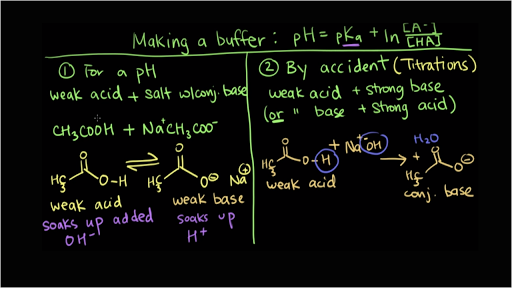 Making a buffer: pH = pKa + ln [A-]/[HA]
① For a pH
weak acid + salt w/conj. base
CH₃COOH + Na⁺CH₃COO⁻
O
H₃C O-H
O
H₃C O⊖ Na⊕
weak acid
soaks up added
OH⁻
weak base
soaks up
H⁺
② By accident (Titrations)
weak acid + strong base
(or " base + strong acid)
O
H₃C O-H
+ Na⁺ ⁻OH
weak acid
H₂O
+
O
H₃C O⊖
conj. base